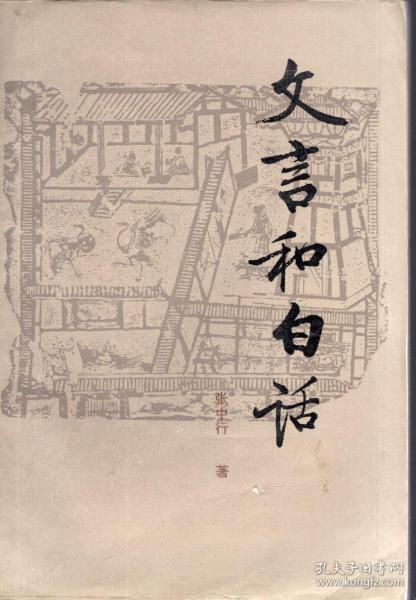 文言和白话
张中行 著
孔夫子旧书网